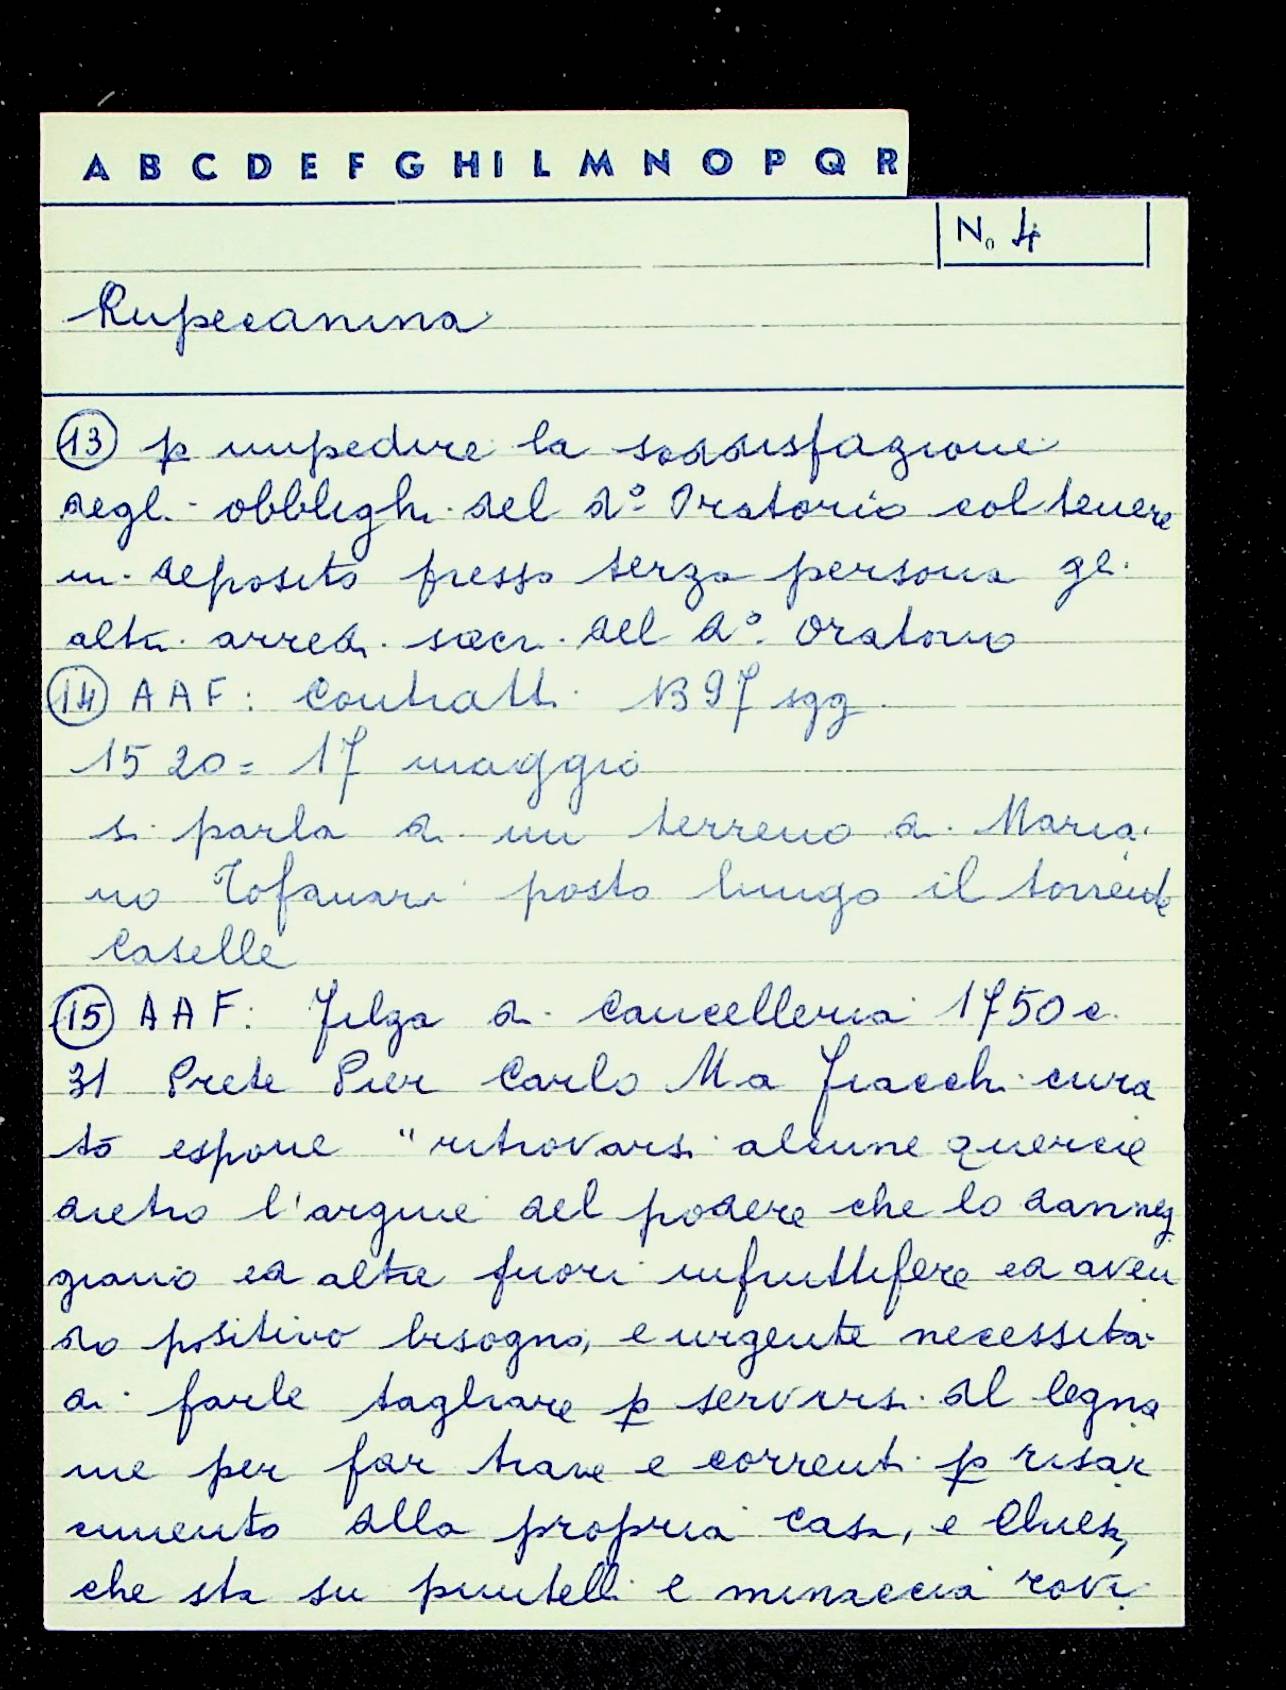 A B C D E F G H I L M N O P Q R
No 4
Rupecanina
13 p impedire la soddisfazione
degli obblighi del do Oratorio col tenere
in deposito presso terza persona gli
altri arredi sacri del do oratorio
14 A A F: Contratti B 97 sgg.
1520 = 17 maggio
si parla di un terreno di Maria
no Tofanari posto lungo il torrente
Caselle
15 A A F: Filza di Cancelleria 1750 c.
31 Prete Pier Carlo Ma Fiacchi cura
to espone "ritrovarsi alcune quercie
dietro l'argine del podere che lo danneg
giano ed altre fuori infruttifere ed aven
do positivo bisogno, e urgente necessità
di farle tagliare p servirsi del legna
me per far trave e correnti p risar
cimento alla propria casa, e Chiesa,
che sta su puntelli e minaccia rovi